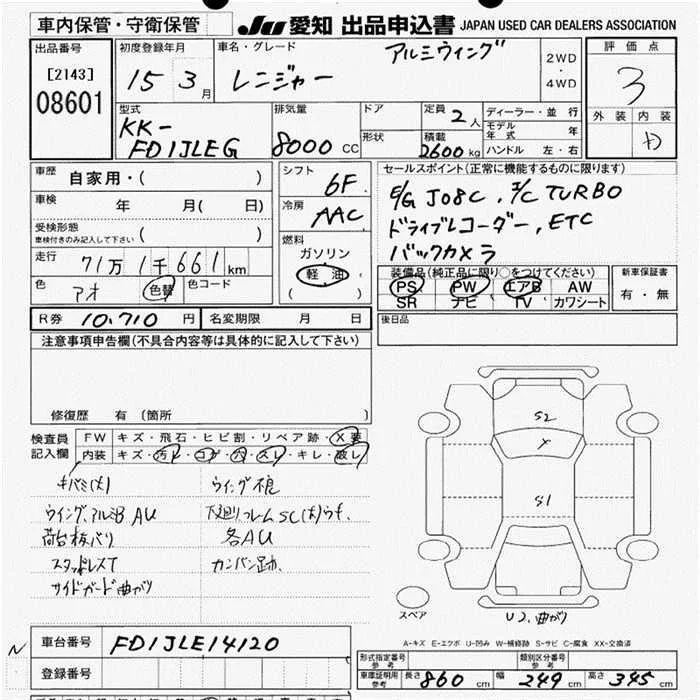 車内保管・守衛保管
JU 愛知 出品申込書 JAPAN USED CAR DEALERS ASSOCIATION
出品番号
[2143]
08601
初度登録年月
15 3 月
車名・グレード
アルミウィング
レンジャー
2WD
・
4WD
評価点
3
外装 内装
D
型式
KK-
FD1JLEG
排気量
8000 CC
ドア
形状
定員
2 人
積載
2600 kg
ディーラー・並行
モデル年式 年
ハンドル 左・右
車歴
自家用・( )
車検
年 月( 日)
受検形態
車検付きのみ記入して下さい ( )
走行
71万 1千 661 km
色
アオ
色替
色コード
シフト
6F
冷房
AAC
燃料
ガソリン
軽油
( )
セールスポイント(正常に機能するものに限ります)
E/G J08C, I/C TURBO
ドライブレコーダー, ETC
バックカメラ
装備品(純正品に限り○をつけてください)
PS PW エアB AW
SR ナビ TV カワシート
新車保証書
有・無
R券 10,710 円
名変期限 月 日
後日品
注意事項申告欄(不具合内容等は具体的に記入して下さい)
修復歴 有(箇所 )
検査員
記入欄
FW キズ・飛石・ヒビ割・リペア跡・X要
内装 キズ・汚レ・コゲ・穴・スレ・キレ・破レ
キバミ(大)
ウイング不良
ウイング,アルミB AU
下廻り,フレームSC(大)ウキ,
荷台板バリ
各AU
スタッドレスT
カンバン跡,
サイドガード曲がり
S2
X
S1
スペア
U2,曲がり
A-キズ E-エクボ U-凹み W-補修跡 S-サビ C-腐食 XX-交換済
N
車台番号 FD1JLE14120
登録番号
形式指定番号
参考
類別区分番号
参考
車庫証明用
参考
長さ 860 cm 幅 249 cm 高さ 345 cm